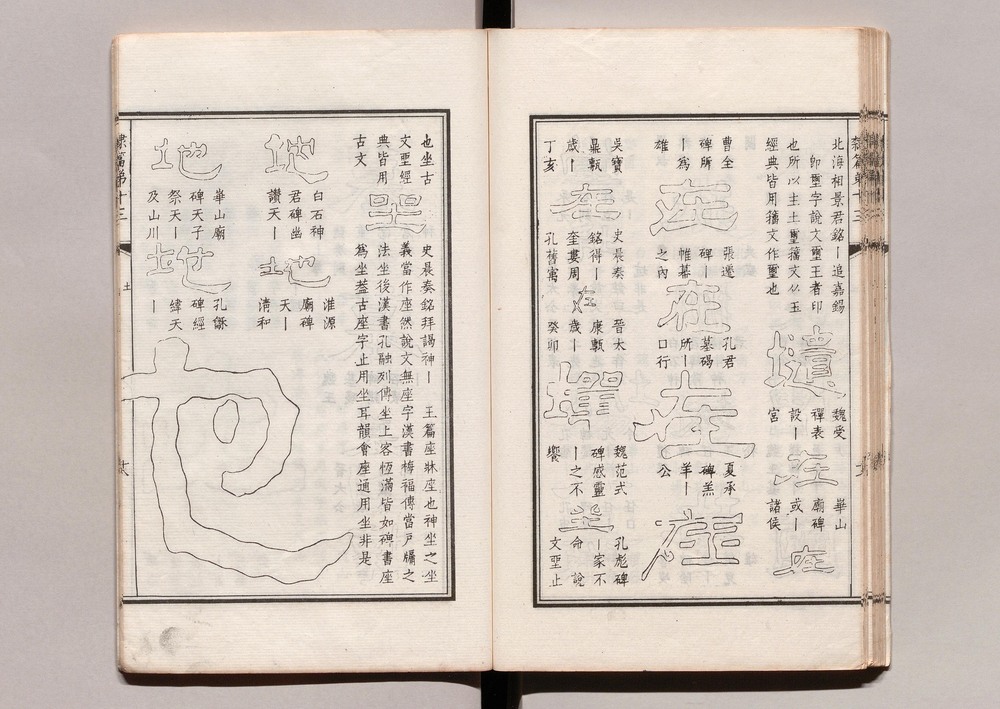 隸篇第十三
北海相景君銘丨追嘉錫
卽璽字說文璽王者印
也所以主土璽籀文从玉
經典皆用籀文作璽也
壇
魏受
禪表
設丨
宮
在
華山
廟碑
或丨
諸侯
在
曹全
碑所
丨爲
雄
在
張遷
碑丨
帷幕
之內
在
孔君
墓碣
所丨
口行
在
夏承
碑羔
羊丨
公
在
吳寶
鼎甎
歲丨
丁亥
在
史晨奏
銘得丨
奎婁周
孔舊寓
在
晉太
康甎
歲丨
癸卯
墠
魏范式
碑感靈
丨之不
饗
坐
孔彪碑
丨家不
命 說
文坐止
也坐古
文坐經
典皆用
古文
坐
史晨奏銘拜謁神丨 玉篇座牀座也神坐之坐
義當作座然說文無座字漢書梅福傳當戶牖之
法坐後漢書孔融列傳坐上客恆滿皆如碑書座
爲坐葢古座字止用坐耳韻會座通用坐非是
地
白石神
君碑幽
讚天丨
地
淮源
廟碑
天丨
淸和
地
華山廟
碑天子
祭天丨
及山川
地
孔龢
碑經
緯天
丨
地
隸篇第十三
土